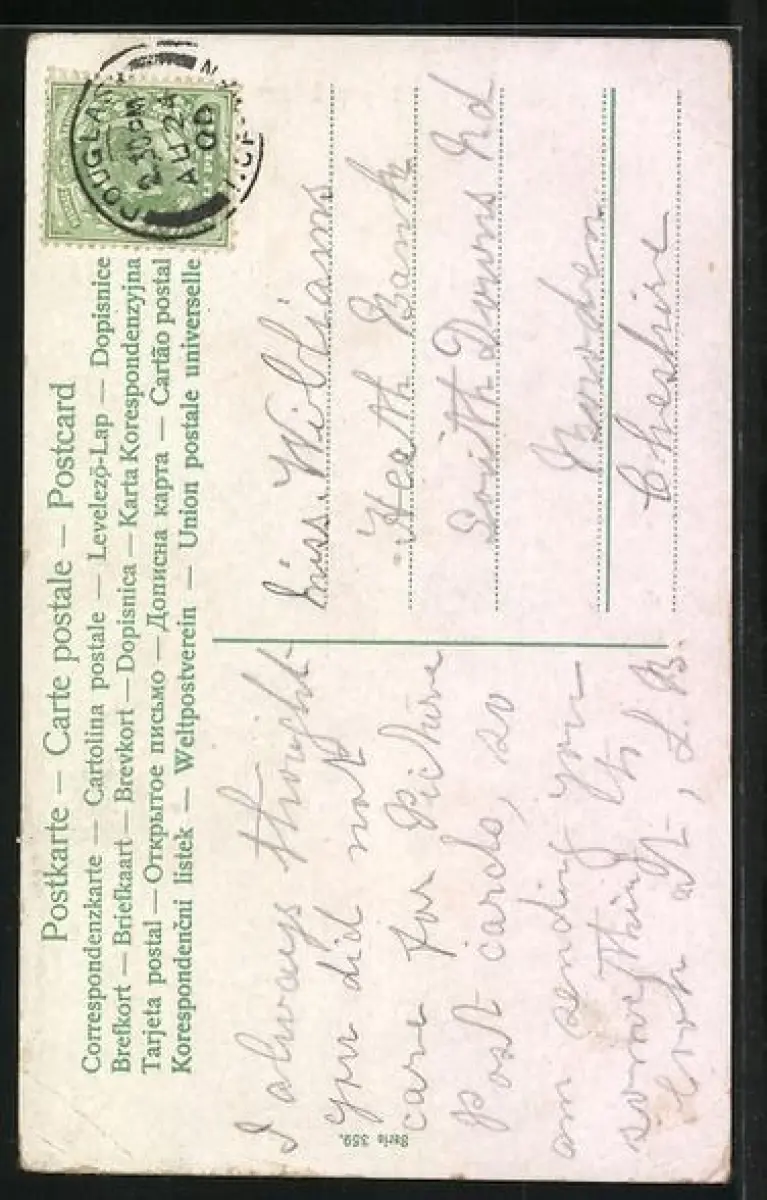 Postkarte – Carte postale – Postcard
Correspondenzkarte — Cartolina postale — Levelező-Lap — Dopisnice
Brefkort — Briefkaart — Brevkort — Dopisnica — Karta Korespondenzyjna
Tarjeta postal — Открытое письмо — Дописна карта — Cartão postal
Korespondenční listek — Weltpostverein — Union postale universelle
DOUGLAS
2.30 PM
AU 24
Miss. Williams
Heath Bank
South Downs Rd
Bowden
Cheshire
I always thought
you did not
care for Picture
Post cards, so
am sending you
something to
look at, L.B.
Serie 359.